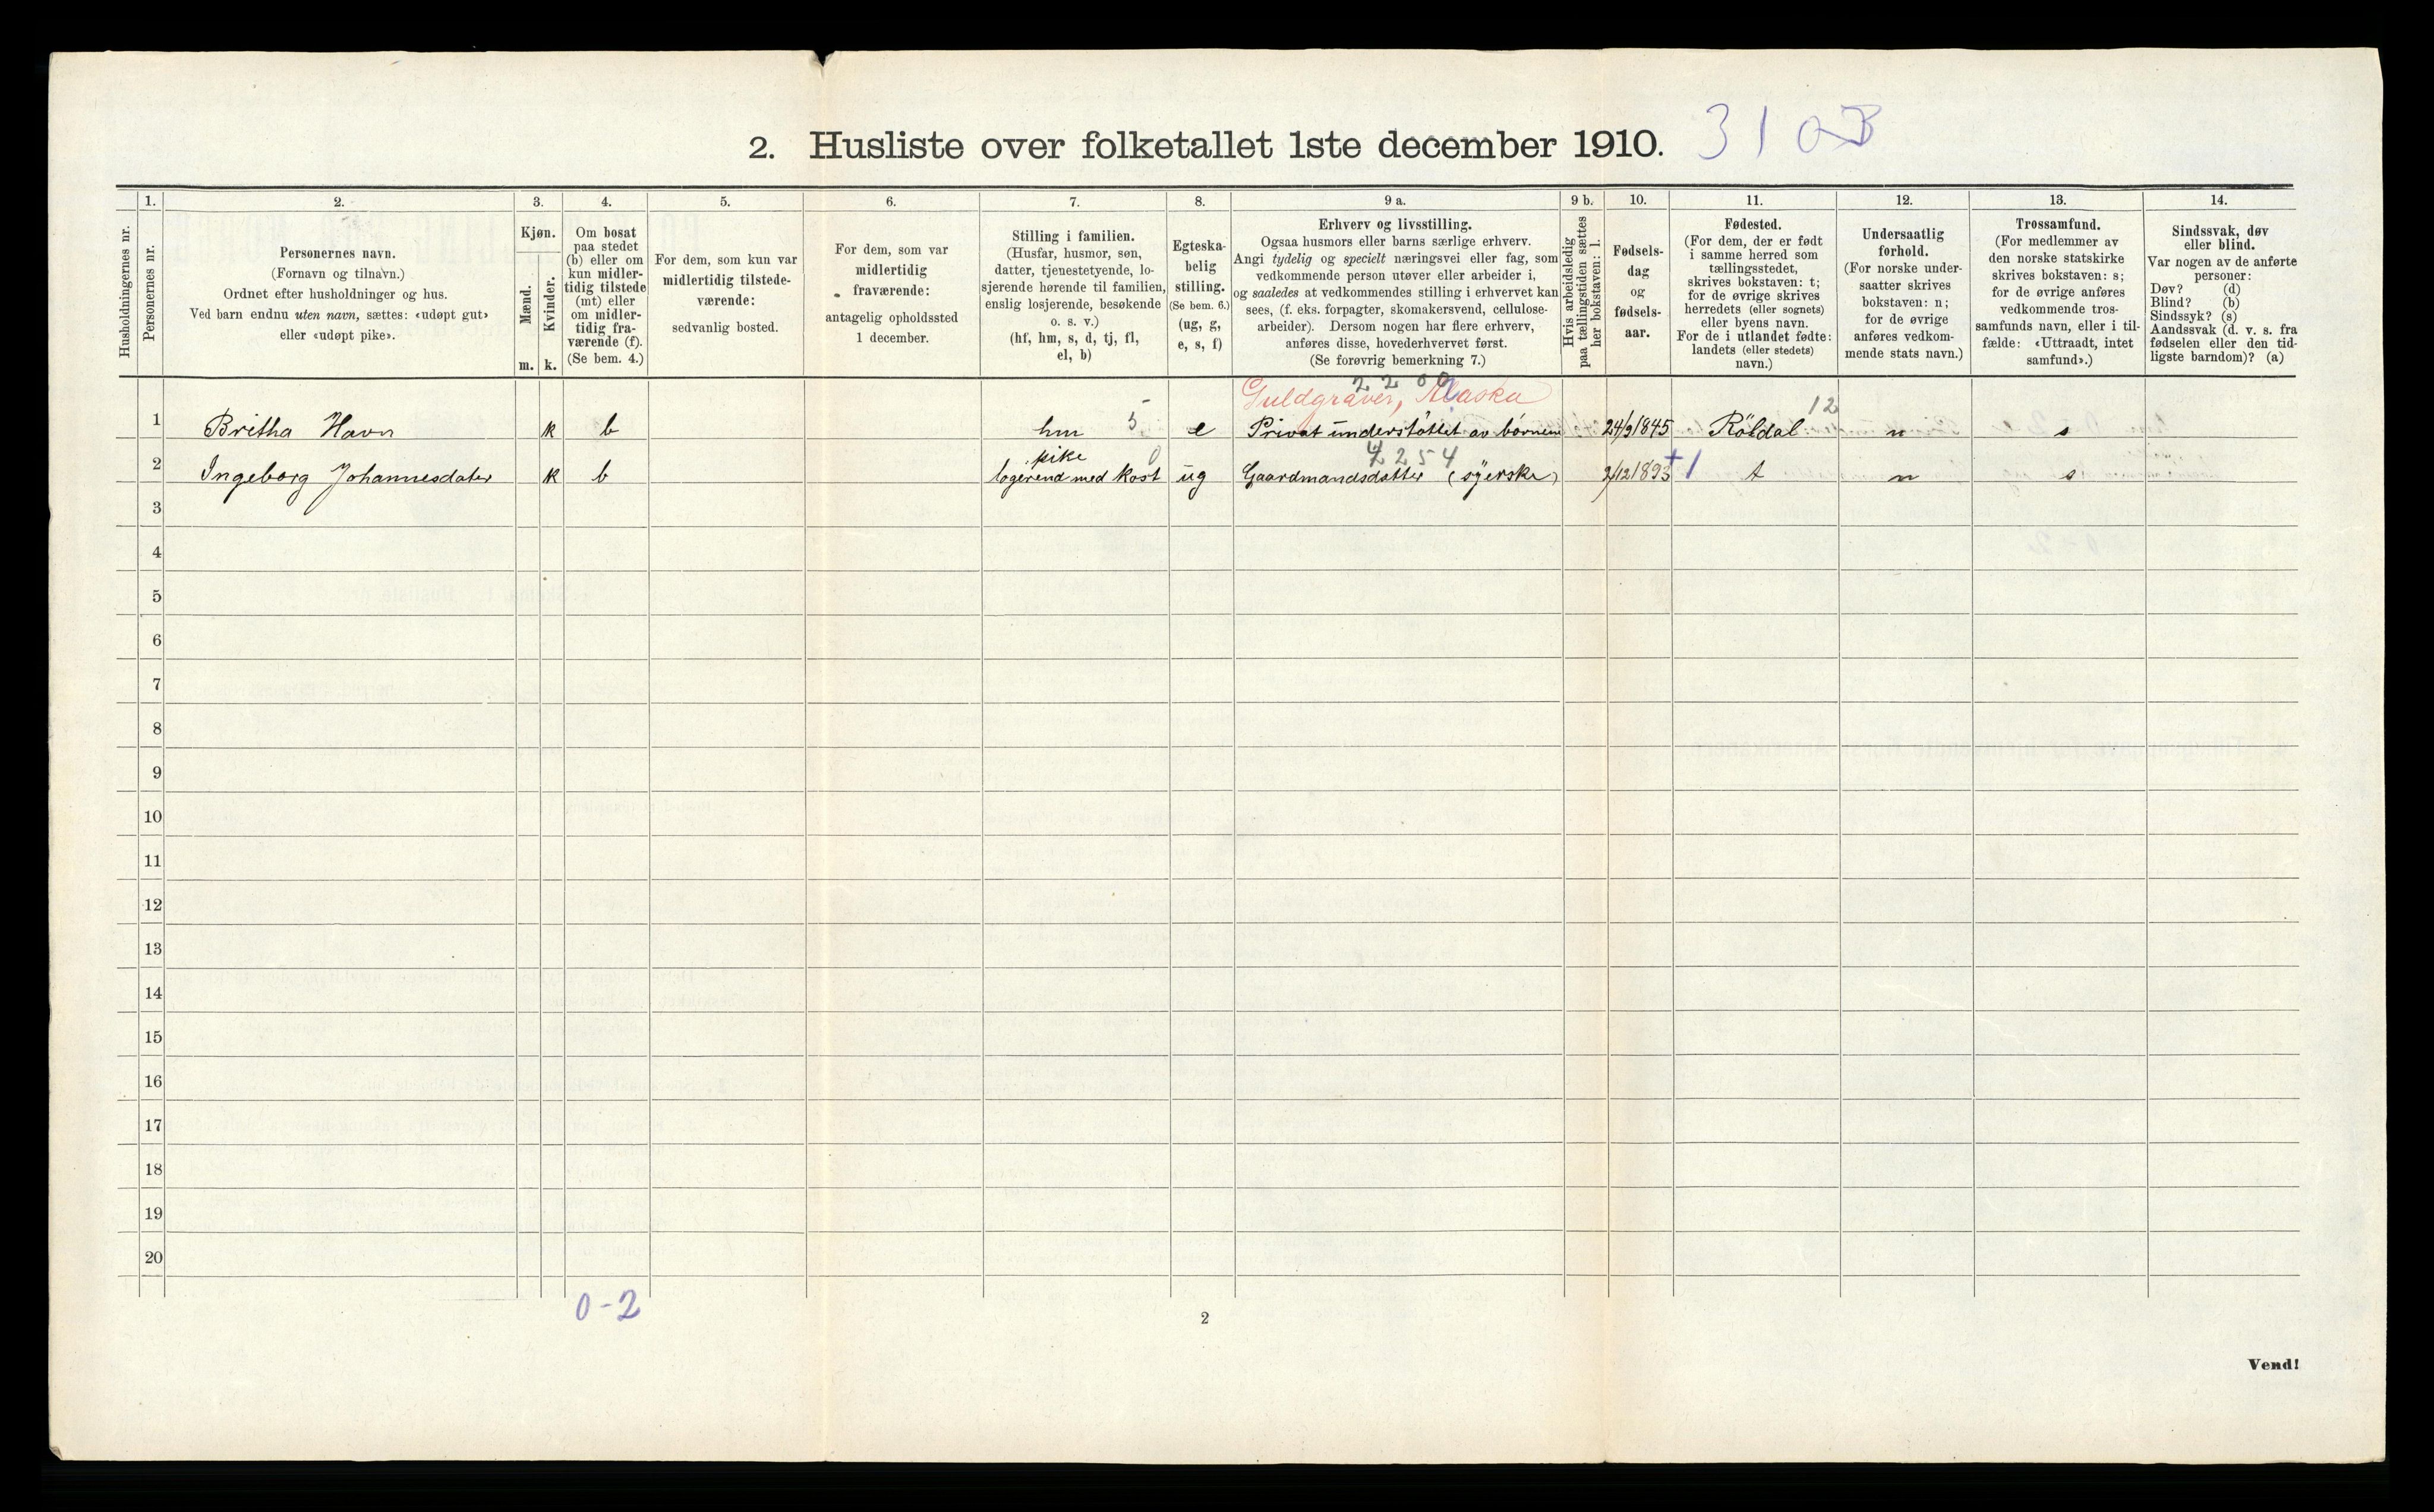 2. Husliste over folketallet 1ste december 1910.
310B
1. 2. 3. 4. 5. 6. 7. 8. 9 a. 9 b. 10. 11. 12. 13. 14.
Husholdningernes nr.
Personernes nr.
Personernes navn.
(Fornavn og tilnavn.)
Ordnet efter husholdninger og hus.
Ved barn endnu uten navn, sættes: «udøpt gut»
eller «udøpt pike».
Kjøn.
Mænd.
Kvinder.
m. k.
Om bosat
paa stedet
(b) eller om
kun midler-
tidig tilstede
(mt) eller
om midler-
tidig fra-
værende (f).
(Se bem. 4.)
For dem, som kun var
midlertidig tilstede-
værende:
sedvanlig bosted.
For dem, som var
midlertidig
fraværende:
antagelig opholdssted
1 december.
Stilling i familien.
(Husfar, husmor, søn,
datter, tjenestetyende, lo-
sjerende hørende til familien,
enslig losjerende, besøkende
o. s. v.)
(hf, hm, s, d, tj, fl,
el, b)
Egteska-
belig
stilling.
(Se bem. 6.)
(ug, g,
e, s, f)
Erhverv og livsstilling.
Ogsaa husmors eller barns særlige erhverv.
Angi tydelig og specielt næringsvei eller fag, som
vedkommende person utøver eller arbeider i,
og saaledes at vedkommendes stilling i erhvervet kan
sees, (f. eks. forpagter, skomakersvend, cellulose-
arbeider). Dersom nogen har flere erhverv,
anføres disse, hovederhvervet først.
(Se forøvrig bemerkning 7.)
Hvis arbeidsledig
paa tællingstiden sættes
her bokstaven: l.
Fødsels-
dag
og
fødsels-
aar.
Fødested.
(For dem, der er født
i samme herred som
tællingsstedet,
skrives bokstaven: t;
for de øvrige skrives
herredets (eller sognets)
eller byens navn.
For de i utlandet fødte:
landets (eller stedets)
navn.)
Undersaatlig
forhold.
(For norske under-
saatter skrives
bokstaven: n;
for de øvrige
anføres vedkom-
mende stats navn.)
Trossamfund.
(For medlemmer av
den norske statskirke
skrives bokstaven: s;
for de øvrige anføres
vedkommende tros-
samfunds navn, eller i til-
fælde: «Uttraadt, intet
samfund».)
Sindssvak, døv
eller blind.
Var nogen av de anførte
personer:
Døv? (d)
Blind? (b)
Sindssyk? (s)
Aandssvak (d. v. s. fra
fødselen eller den tid-
ligste barndom)? (a)
2200
Guldgraver, Alaska
12
1 Britha Havn k b hm 5 e Privat understöttet av börnene 24/9 1845 Röldal n s
pike 0 4254
2 Ingeborg Johannesdater k b logerend med kost ug Gaardmandsdatter (syerske) 2/12 1893 +1 t n s
3
4
5
6
7
8
9
10
11
12
13
14
15
16
17
18
19
20
0-2
2
Vend!